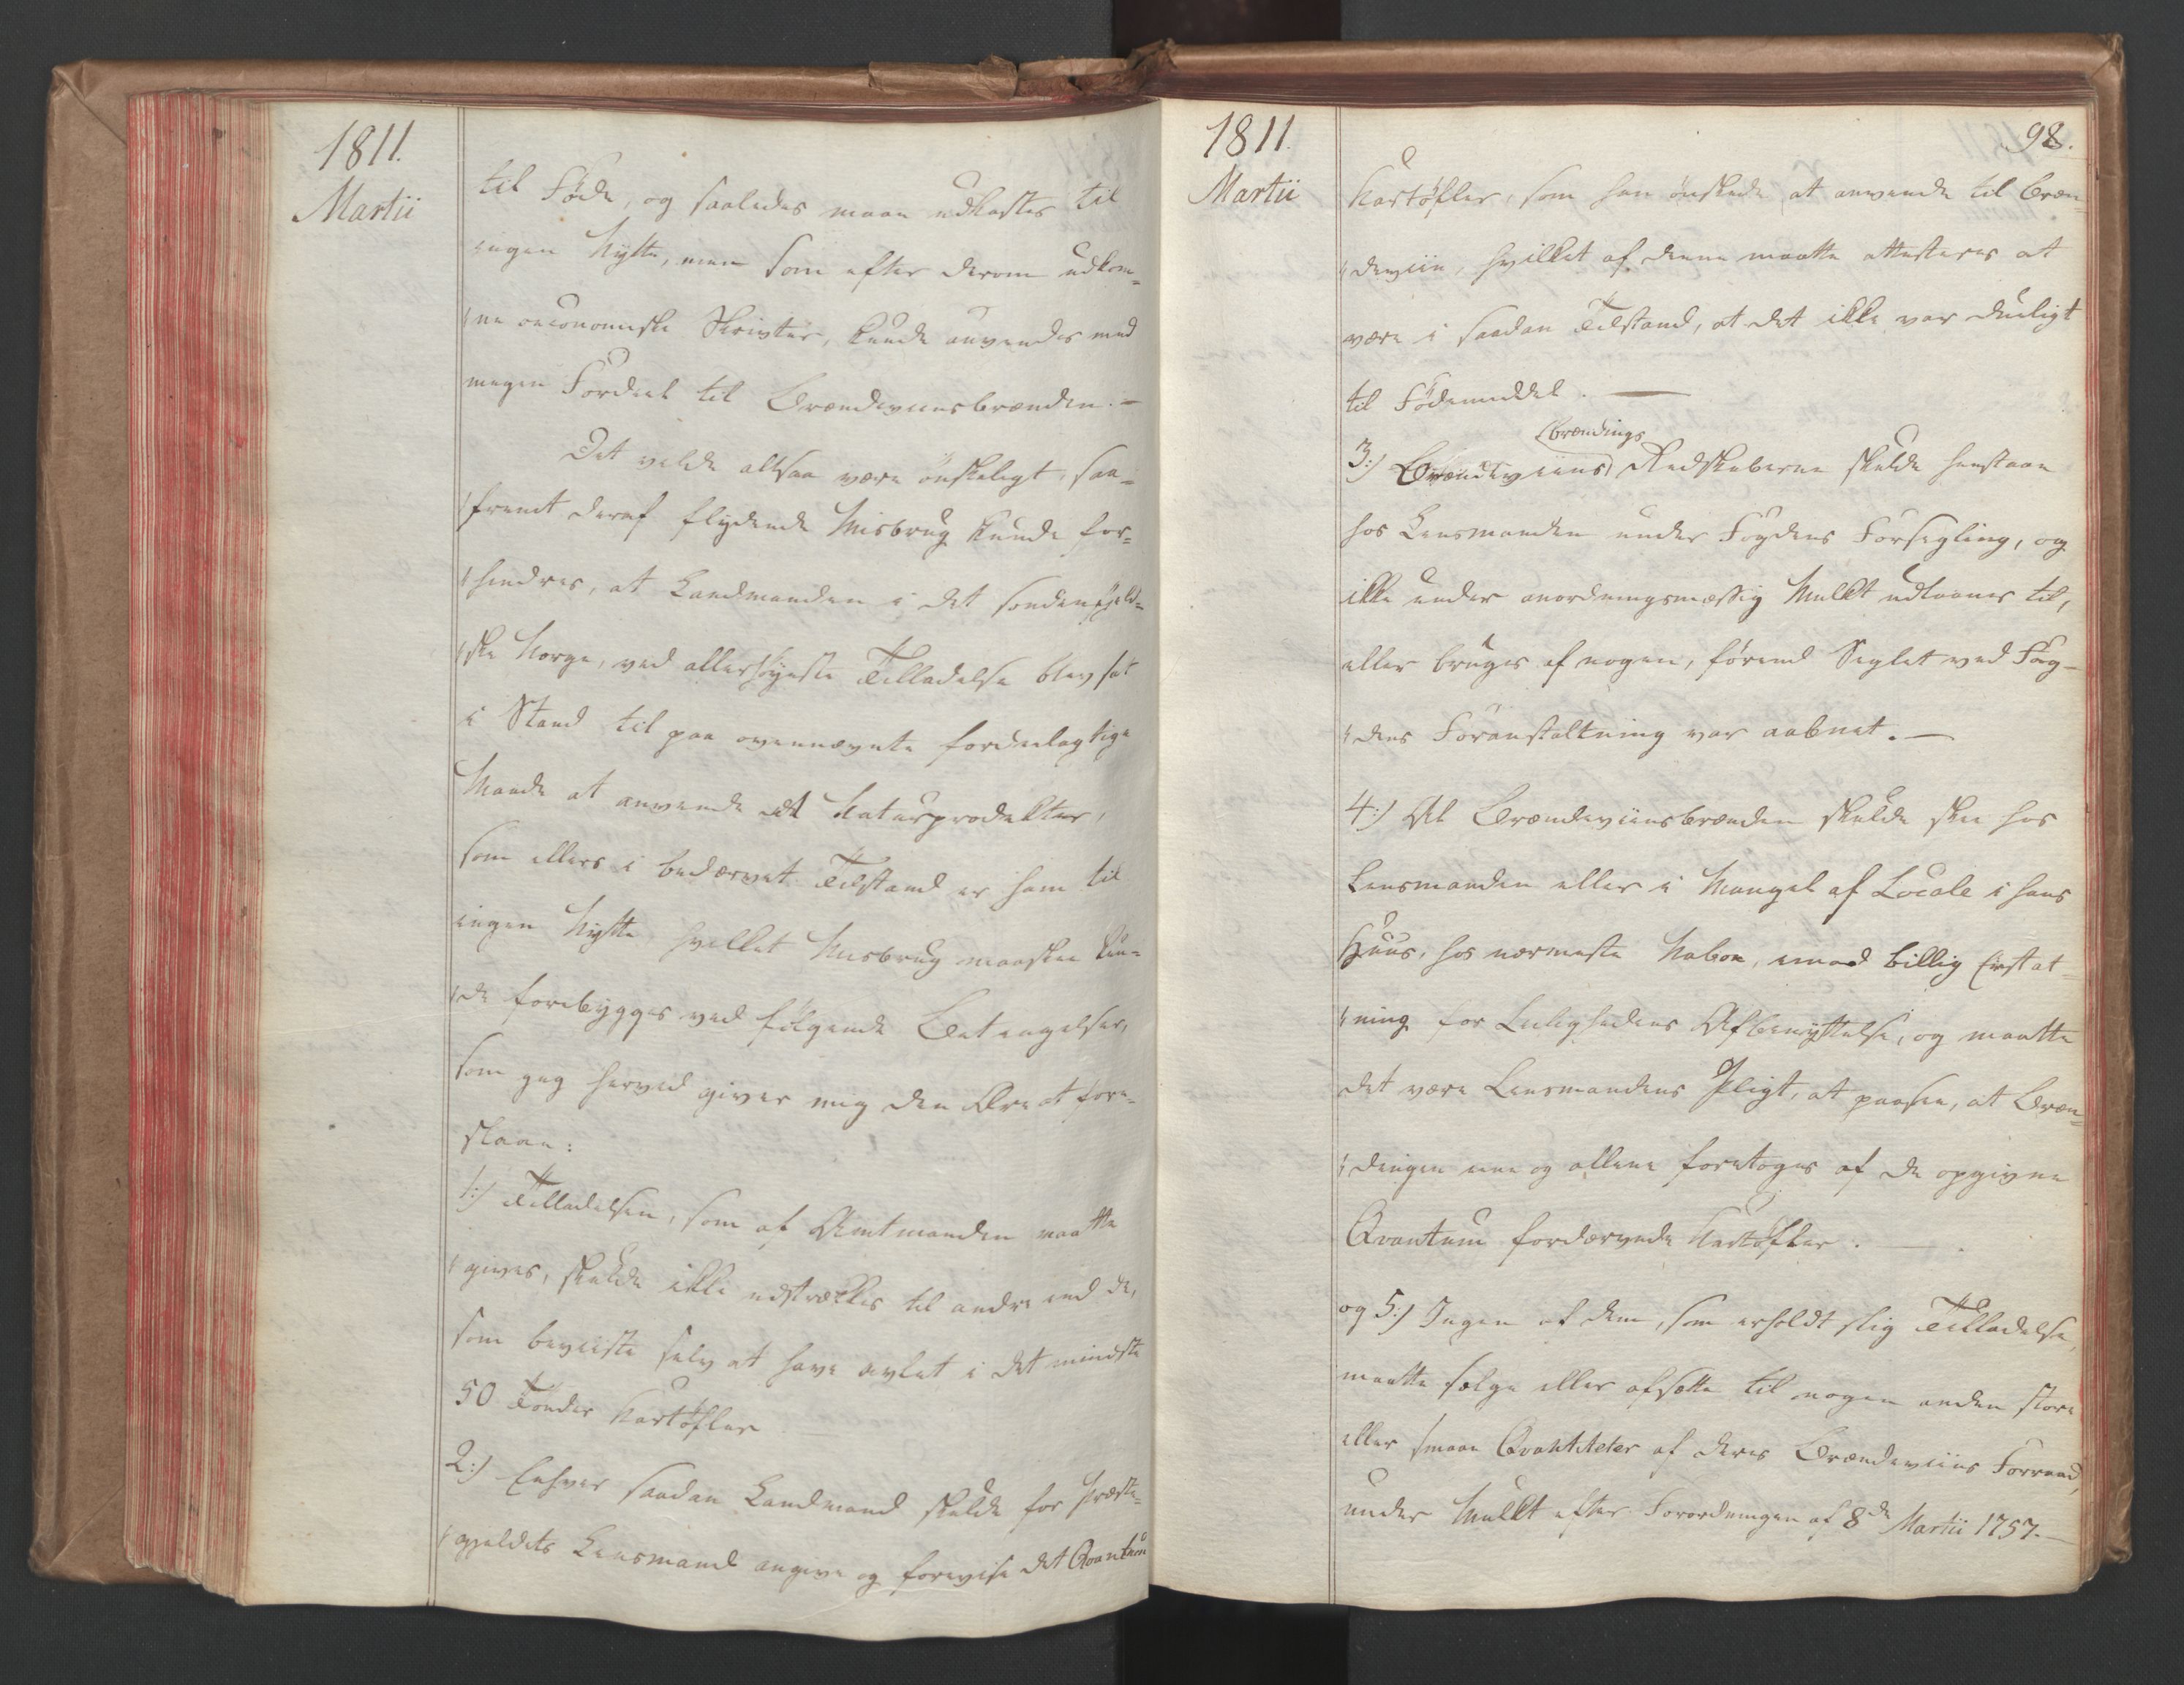 1811.
Martii
til Föde, og saaledes maae udkastes til
ingen Nytte, men som efter derom udkom=
"ne oeconomiske Skrivter, kunde anvendes med
megen Fordeel til Brændeviinsbrænden. —
Det vilde altsaa være ønskeligt, saa=
"fremt deraf flydende Misbrug kunde for=
"hindres, at Landmanden i det søndenfjeld=
"ske Norge, ved allerhøyeste Tilladelse blev sat
i Stand til paa ovennævnte fordeelagtige
Maade at anvende et Naturprodukt,
som ellers i bedærvet Tilstand er ham til
ingen Nytte, hvilket Misbrug maaskee kun=
"de forebygges ved følgende Betingelser,
som jeg herved giver mig den Ære at fore=
slaae:
1:) Tilladelsen, som af Amtmanden maatte
"gives, skulde ikke udstrækkes til andre end de,
som beviiste selv at have avlet i det mindste
50 Tønder Kartøfler
2:) Enhver saadan Landmand skulde for Præste=
"gjeldets Lensmand angive og forevise det Qvantum
1811.
Martii
98.
Kartøfler, som han ønskede at anvende til Bræn=
"deviin, hvilket af denne maatte attesteres at
være i saadan Tilstand, at det ikke var dueligt
til Fødemiddel. —
brændings
3:) Brændeviins Redskaberne skulde henstaae
hos Lensmanden under Fogdens Forsegling, og
ikke under anordningsmæssig Mulkt udlaanes til,
eller bruges af nogen, førend Seglet ved Fog=
"dens Foranstaltning var aabnet. —
4:) Al Brændeviinsbrænden skulde skee hos
Lensmanden eller i Mangel af Locale i hans
Huus, hos nærmeste Naboe, imod billig Erstat=
"ning for Leilighedens Afbenyttelse, og maatte
det være Lensmandens Pligt, at paasee, at Bræn=
"dingen ene og allene foretoges af de opgivne
Qvantum fordærvede Kartøfler. —
og 5:) Ingen af dem, som erholdt slig Tilladelse,
maatte sælge eller afsætte til nogen anden store
eller smaae Qvantiteter af deres Brændeviins Forraad,
under Mulkt efter Forordningen af 8de Martii 1757. —